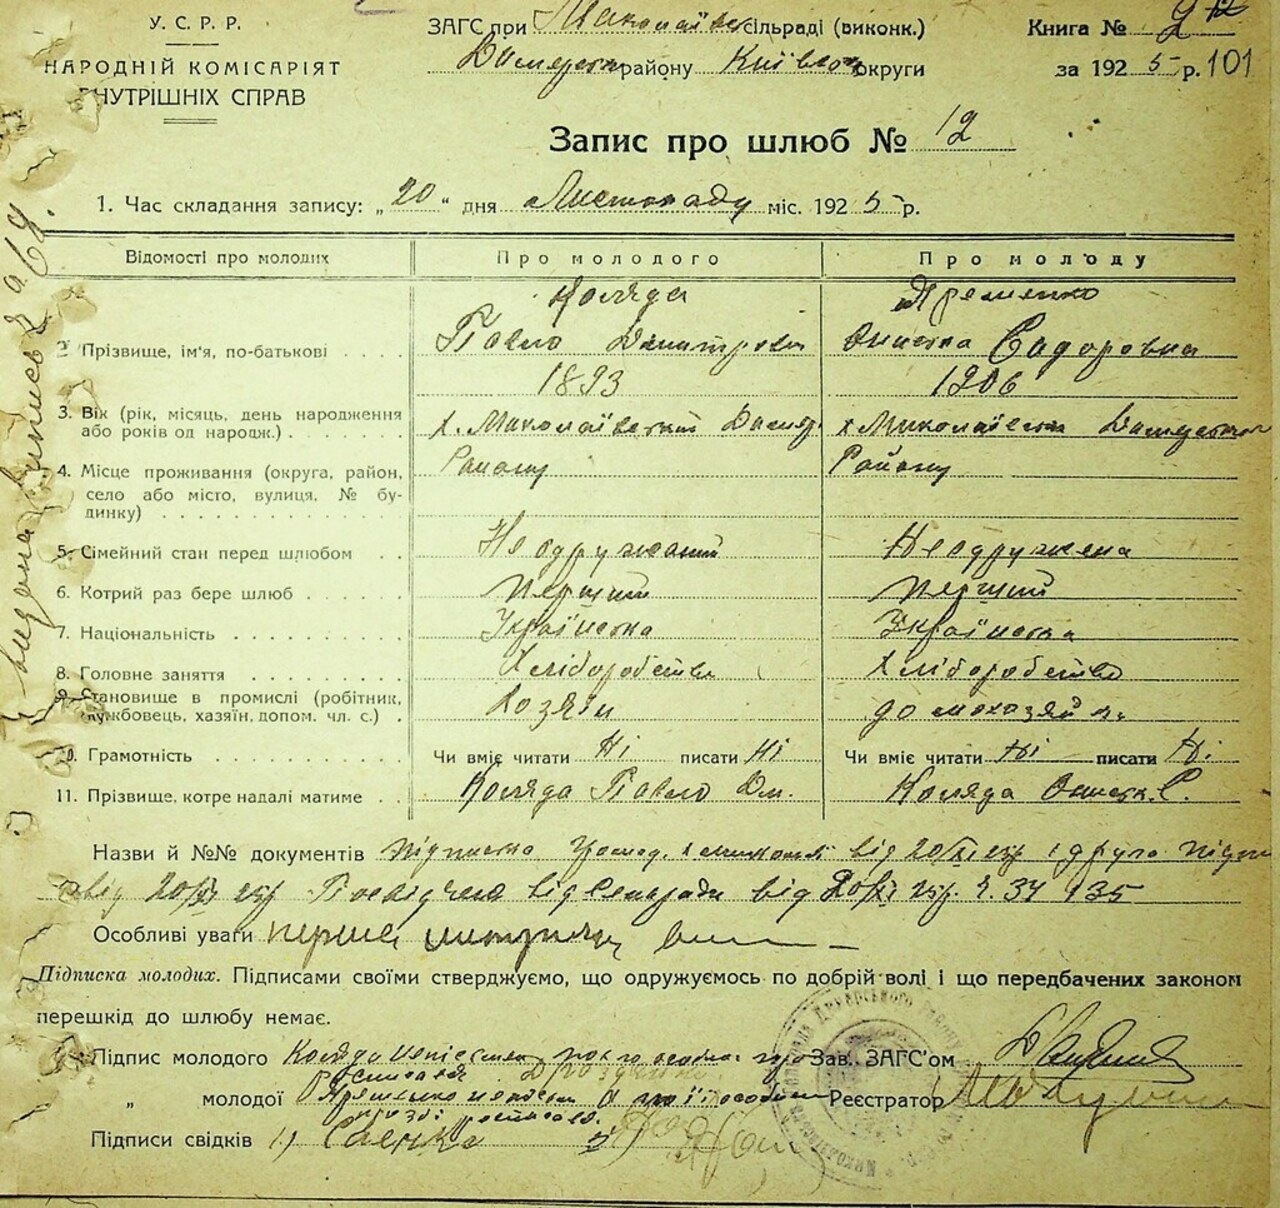 У.С.Р.Р.
НАРОДНІЙ КОМІСАРІЯТ
ВНУТРІШНІХ СПРАВ
ЗАГС при Миколаївс сільраді (виконк.)
Димерськ району Київськ округи
Книга № 2
за 1925 р. 101
Запис про шлюб № 12
1. Час складання запису: „20“ дня Листопаду міс. 1925 р.
Відомості про молодих Про молодого Про молоду
Коляда Яременко
2. Прізвище, ім'я, по-батькові . . . . Павло Дмитрович Онистка Сидоровна
1893 1906
3. Вік (рік, місяць, день народження
або років од народж.) . . . . . . . . х. Миколаївський Димер. х Миколаївськ Димерського
4. Місце проживання (округа, район, Району Району
село або місто, вулиця, № бу-
динку) . . . . . . . . . . . . . .
5. Сімейний стан перед шлюбом . . Неодружаний Неодружена
6. Котрий раз бере шлюб . . . . . . Перший Перший
7. Національність . . . . . . . . . Українська Українська
8. Головне заняття . . . . . . . . Хліборобство Хліборобство
9. Становище в промислі (робітник, Хозяін домохозяйк.
службовець, хазяїн, допом. чл. с.) .
10. Грамотність . . . . . . . . . . Чи вміє читати Ні писати Ні Чи вміє читати Ні писати Ні.
11. Прізвище, котре надалі матиме . . Коляда Павло Дм. Коляда Онистк. С.
Назви й №№ документів Підписка Громад. від 20/XI 25р і друга підпи
від 20/XI 25р Посвідчення від Сельради від 20/XI 25р. ч. 34 135
Особливі уваги перша
Підписка молодих. Підписами своїми стверджуємо, що одружуємось по добрій волі і що передбачених законом
перешкід до шлюбу немає.
Підпис молодого Коляда Зав. ЗАГС'ом
„ молодої Яременко Реєстратор
Підписи свідків 1) Саенко 2)
видана виписьз а 69.